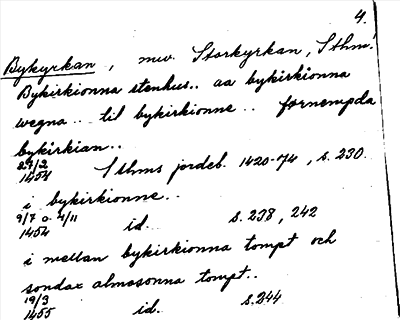 4.
Bykyrkan, nuv. Storkyrkan, Sthm.
Bykirkionna stenhus.. aa bykirkionna
wegna .. til bykirkionne .. fornempda
bykirkian..
27/2 1454 Sthms jordeb. 1420-74, s. 230.
i bykirkionne..
9/7 o. 4/11 1454 id. s. 238, 242
i mellan bykirkionna tompt och
sondax almosonna tompt..
19/3 1455 id. s. 244